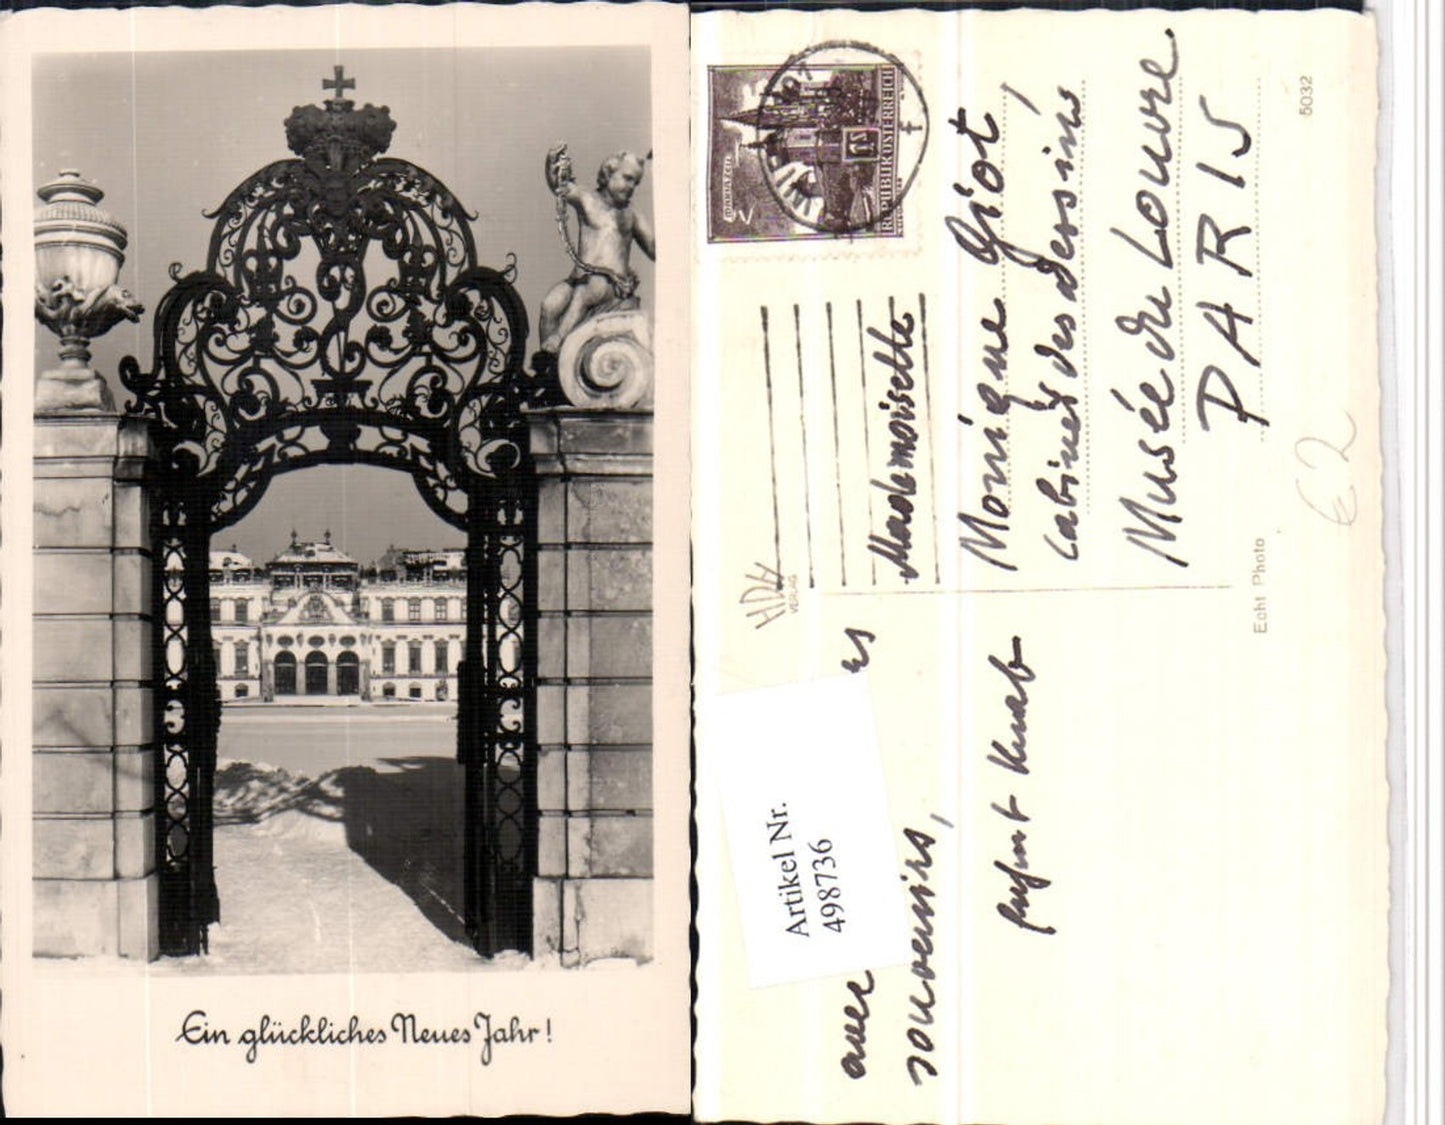 Ein glückliches Neues Jahr!
REPUBLIK ÖSTERREICH
HDH
VERLAG
Mademoiselle
Monique Giot,
Cabinet des dessins
Musée du Louvre
PARIS
5032
Echt Photo
€ 2
Artikel Nr.
498736
avec
souvenirs,
Knab